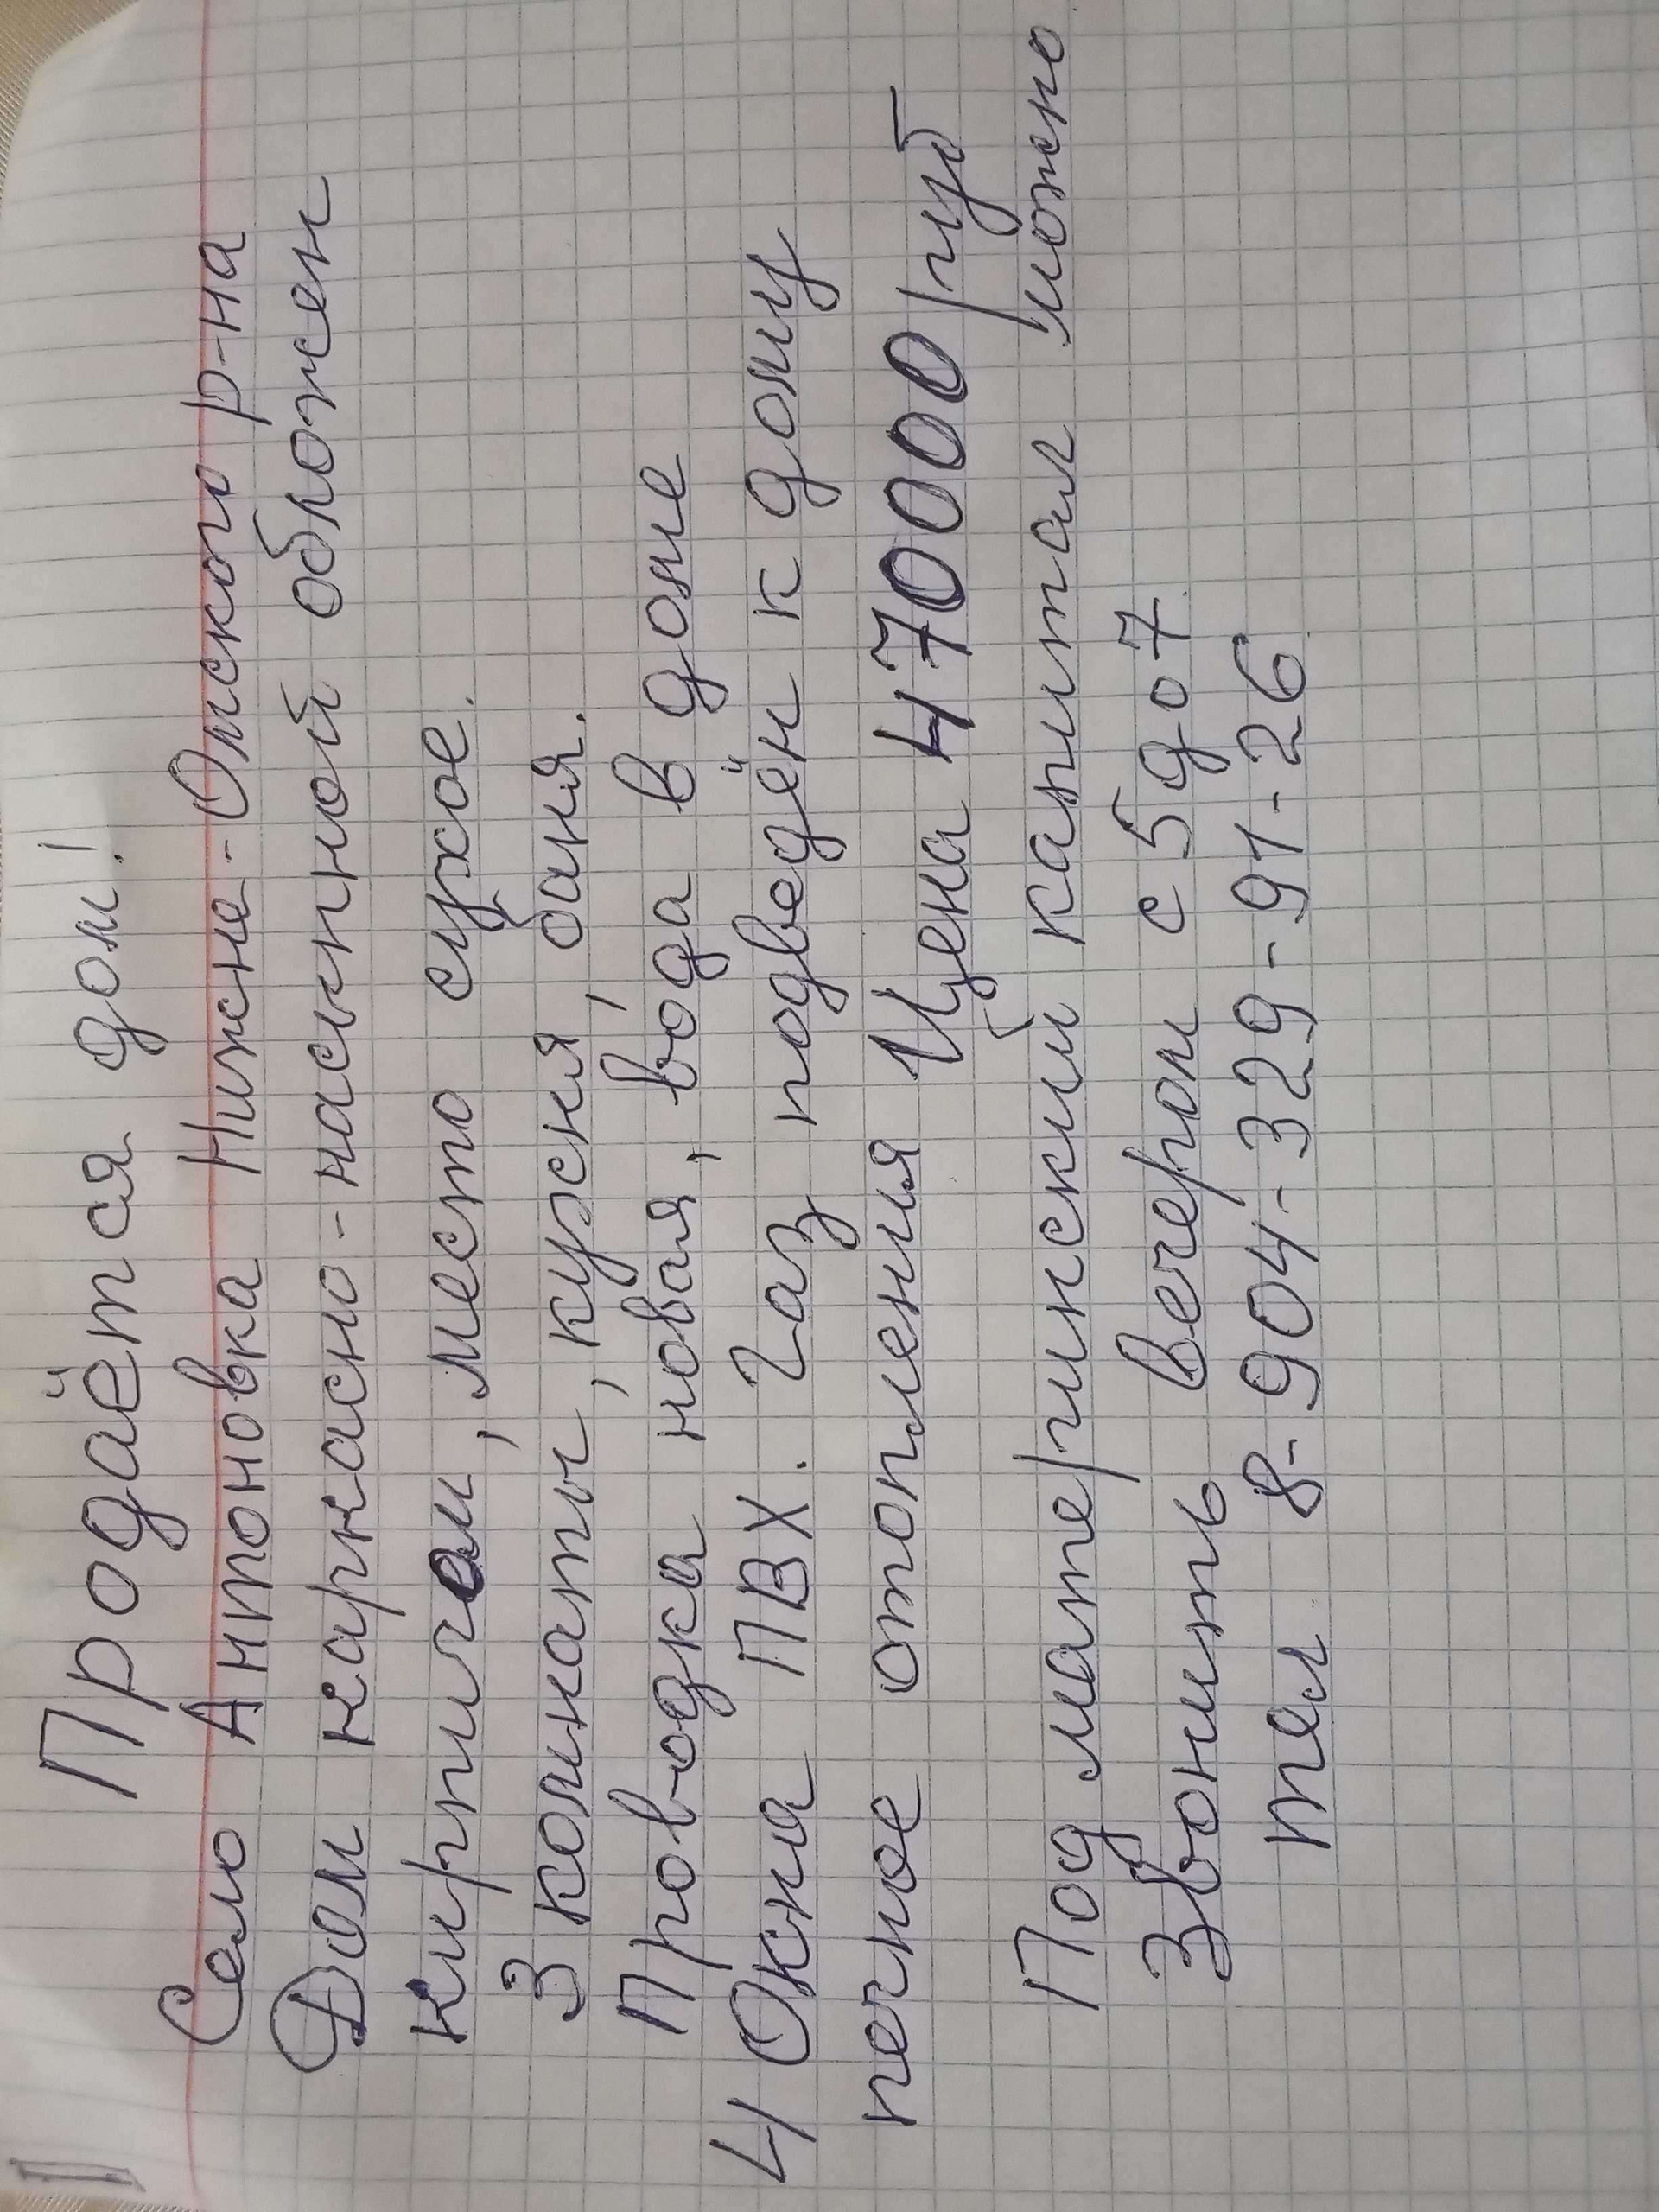 Продаётся дом!
Село Антоновка Нижне-Омского р-на
Дом каркасно-насыпной обложен
кирпичом, место сухое.
3 комнаты, кухня, баня.
Проводка новая, вода в доме
4 Окна ПВХ. Газ подведён к дому
печное отопления Цена 470000 руб
Под материнский капитал можно
Звонить вечером с 5 до 7
тел 8-904-329-91-26